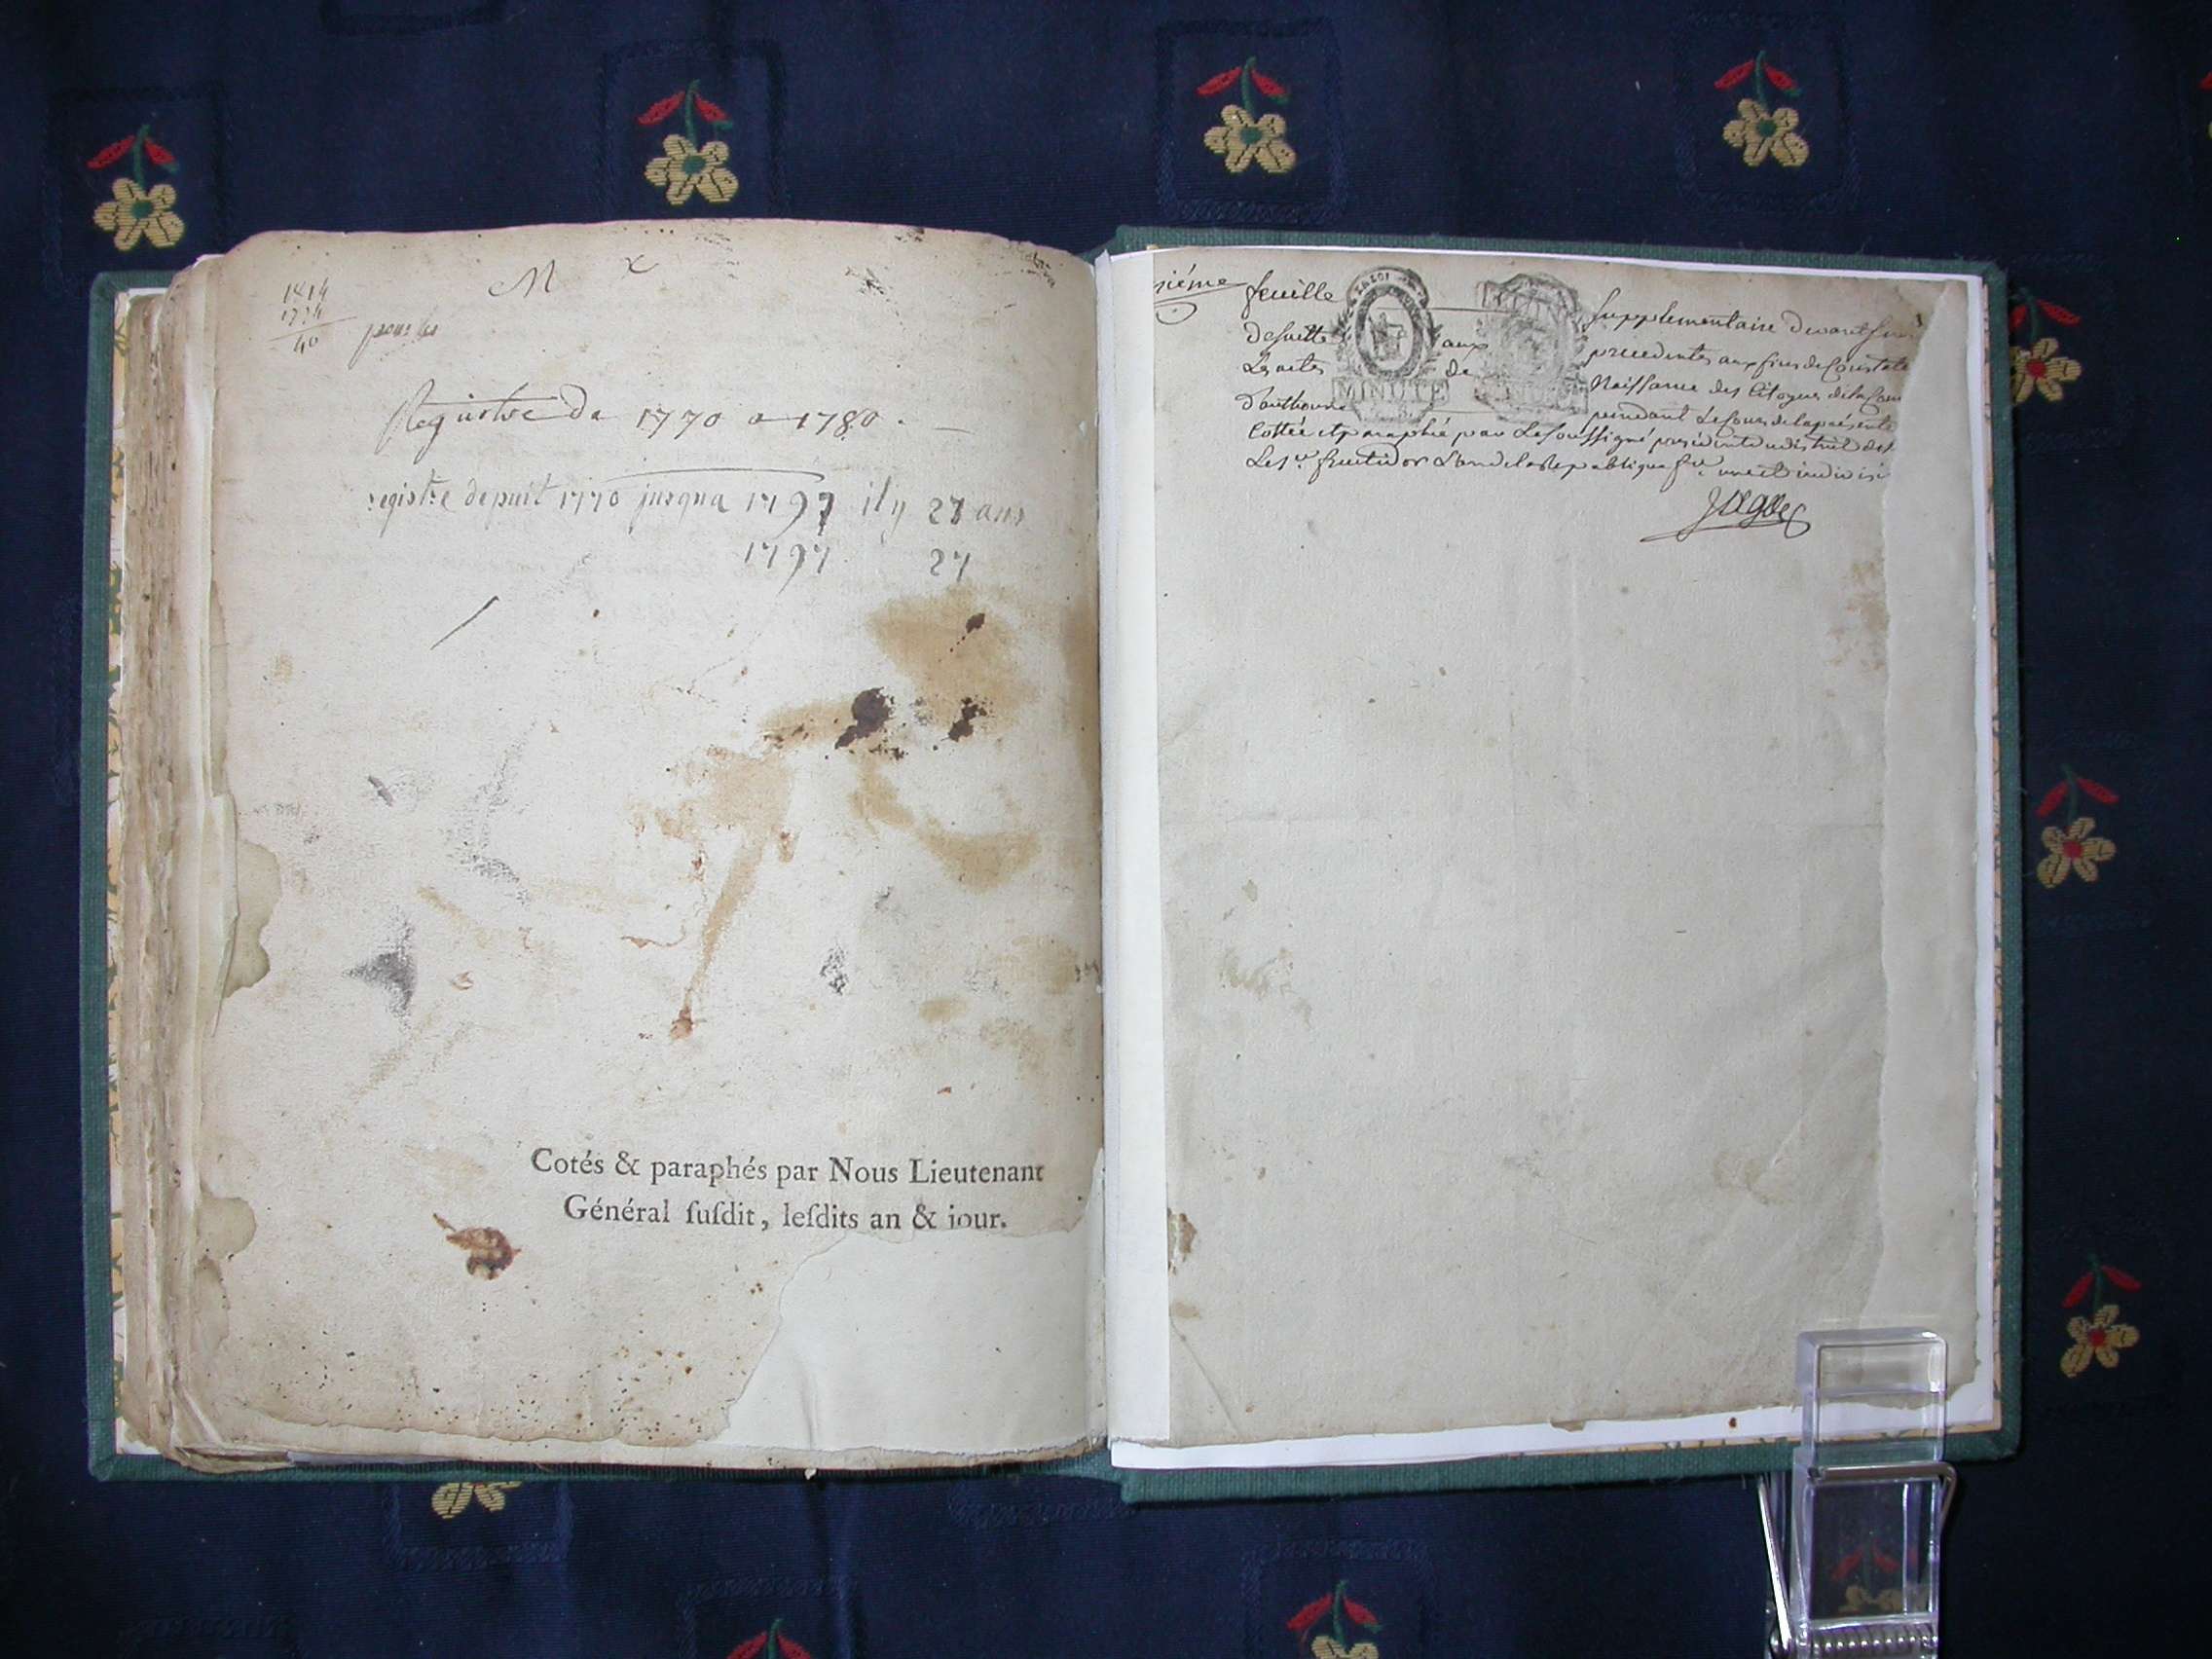 M x
1814
1774
40
Registre de 1770 a 1780.
registre depuit 1770 jusqua 1797 il y 27 ans
1797 27
Cotés & paraphés par Nous Lieutenant
Général ſuſdit, leſdits an & jour.
sième feuille supplementaire devant
de suitte aux precedentes aux fins de Constate
Les actes de Naissance des Citoyens de la Com
MINUTE
pendant Le Cours de la présente
Cottée et paraphée par Le Soussigné président du district
Les fructidor L'an de la Republique une et indivisi